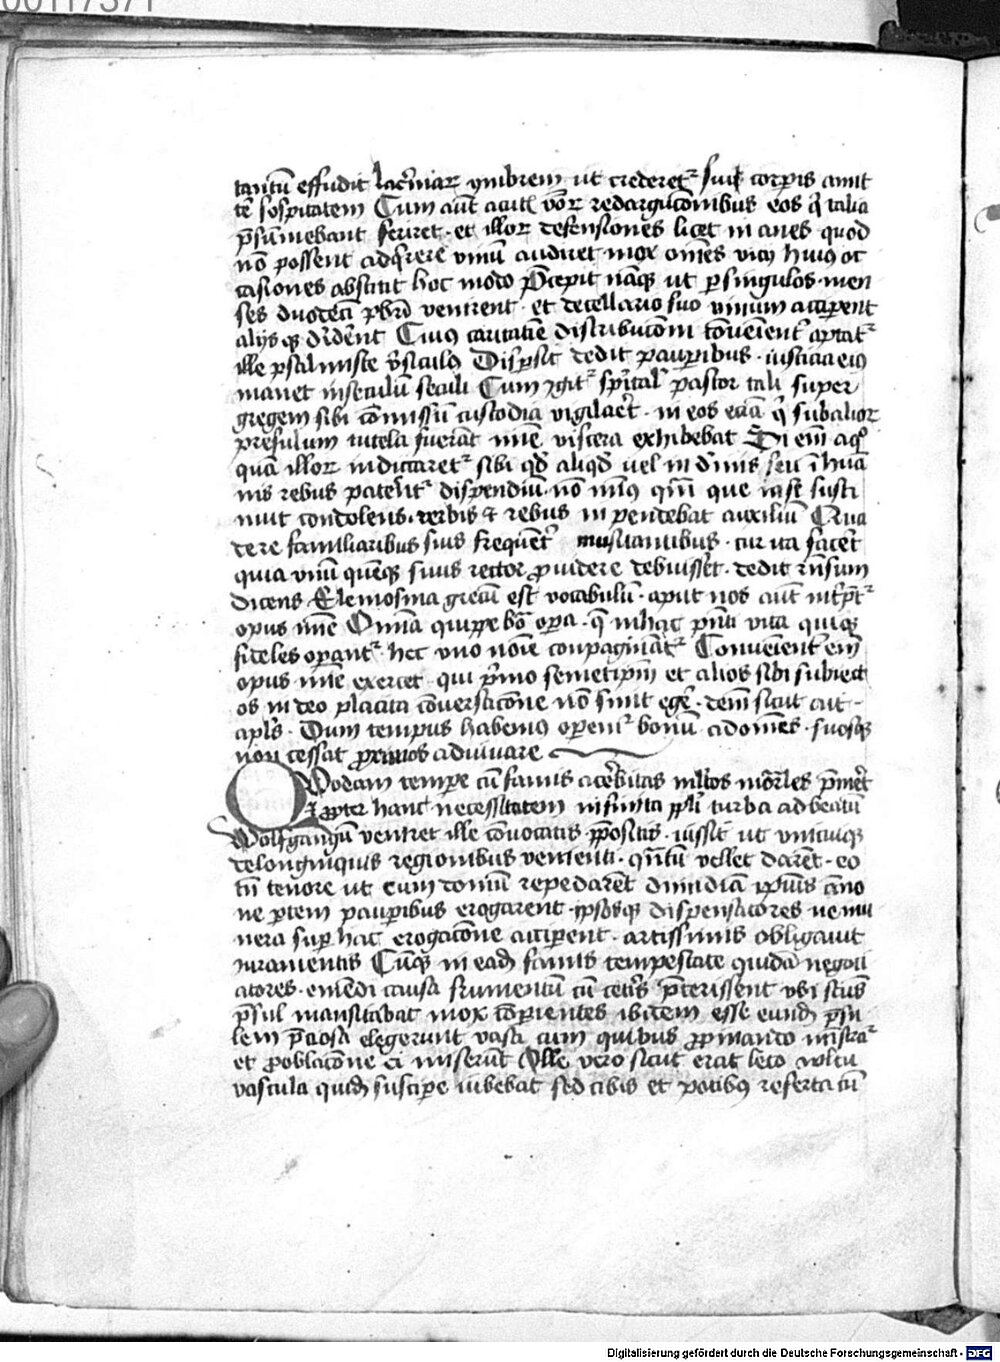 00117371
tantū effudit lacrīar ymbrem ut crederet suis corpis amit
tē sospitatem Cum aūt acutꝭ vboꝝ redargucōnibus eos q̄ talia
p̄sumebant feriret · et illoꝝ defensiones licet inanes quod
nō possent adq̄rere vinū audiret mox om̄es vicij huiꝰ oc
casiones abstulit hoc modo P̄cepit nāqꝫ ut p singulos men
ses duodeci p̄bri venirent · et de cellario suo vinum acciꝑent
alijsqꝫ Cuiꝰ caritatiue distribucōni cōuenient aptat᷑
ille psalmiste v̄siculꝰ Dispsit dedit pauꝑibus · iusticia eiꝰ
manet in seculū seculi Cum ygit᷑ sp̄ital᷑ pastor tali super
gregem sibi cōmissū custodia vigilaret · in eos eciā q̄ sub alioꝝ
presulum tutela fuerāt mīe viscera exhibebat Si em̄ aqꝫ
quā illoꝝ indicaret᷑ sibi qd̄ aliqd̄ uel in diuīs seu ī huā
nis rebus paterēt᷑ dispendiū · nō minꝰ qm̄ que in se susti
nuit condolens · verbis et rebus inpendebat auxiliū Qua
de re familiaribus suis frequent᷑ mussitantibus · cur ita facēt
quia vnū quēqꝫ suus rector ꝓuidere debuisset · dedit rn̄sum
dicens Elemosina grecū est vocabulū · aput nos aūt int̄p̄t᷑
opus mīe Omīa quippe boā oꝑa · q̄ in hac pn̄ti vita quiqꝫ
fideles oꝑant᷑ · hec vno noīe conpaginat᷑ Conueniēt em̄
opus mīe exercet · qui p̄mo semetip̄m et alios sibi subiect
os in deo placita cōuersacōne nō sinit egē · dein sicut ait ·
apl̄s · Dum tempus habemus oꝑem᷑ bonū ad om̄es · suosqꝫ
non cessat ꝓximos adiuuare
Quodam tempe cū famis acerbitas ml̄tos mōrles p̄met
ꝓpter hanc necessitatem infinita ppl̄i turba ad beatū
Wolfgangū veniret ille cōuocatis p̄positis · iussit ut vnicuiqꝫ
de longinquis regionibus venienti · qn̄tū vellet darēt · eo
tn̄ tenore ut cum domū repedarēt dimidiā
ne ꝑtem pauꝑibus erogarent · ipsosqꝫ dispensatores ne mu
nera suꝑ hac erogacōne acciꝑent · artissimis obligauit
iuramentis Cūqꝫ in eadē famis tempestate quidā negoti
atores · emēdi causa frumentū cū cetīs p̄terissent vbi scūs
p̄sul mansitabat mox cōꝑientes ibidem esse eundē p̄su
lem p̄ciosa elegerunt vasa cum quibus ꝓpinando
et ꝓ oblacōne ei miserūt Ille vero sicut erat leto vultu
vascula quidē susciꝑe iubebat sed cibis et potibꝰ referta cū
Digitalisierung gefördert durch die Deutsche Forschungsgemeinschaft - DFG